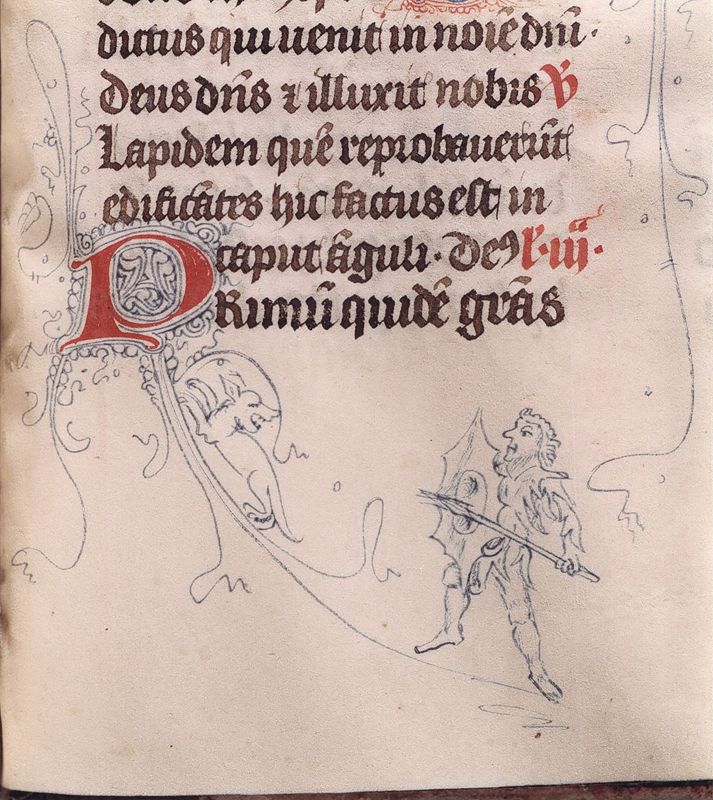 dictus qui uenit in noīe dn̄i·
Deus dn̄s ⁊ illuxit nobis V̄
Lapidem quē reprobauerūt
edificātes hic factus est in
caput āguli· Deꝯ l·iij·
PRimū quidē gr̄as